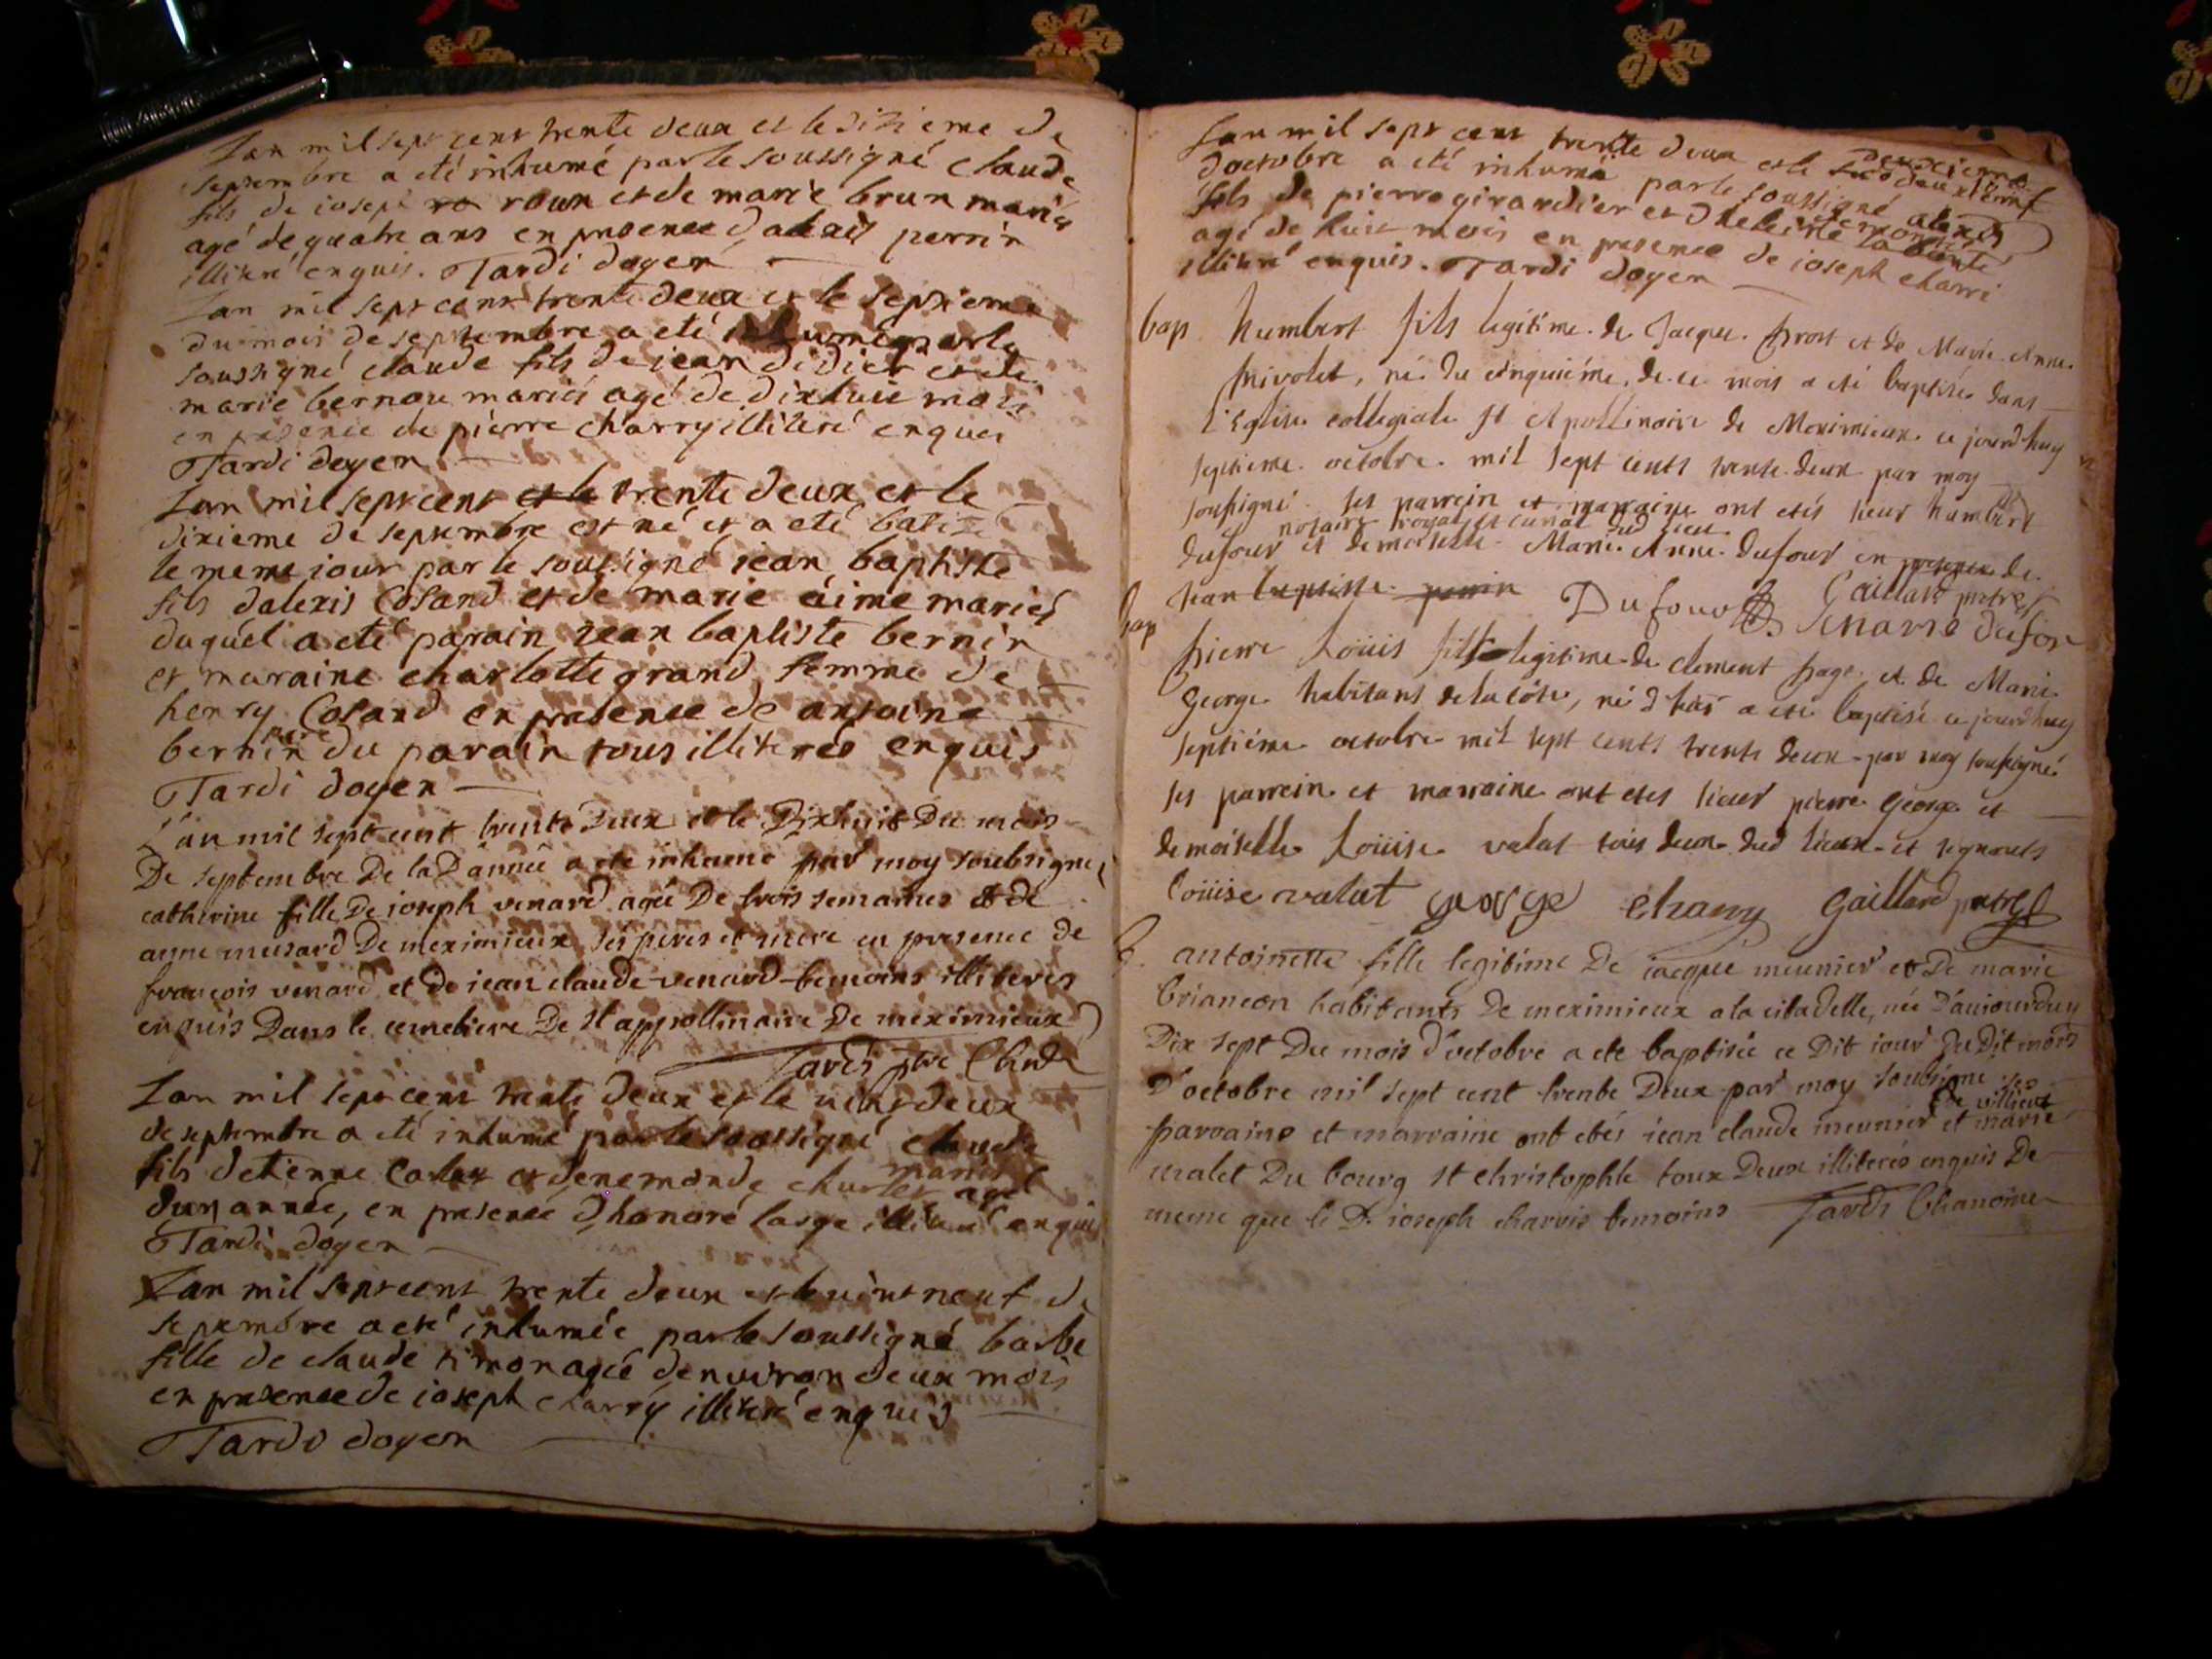 Lan mil sept cent trente deux et le sizieme de
septembre a eté inhumé par le soussigné claude
fils de iosept roux et de marie brun mariés
agé de quatre ans en presence d'alexis perrin
illiteré enquis. Tardi doyen
Lan mil sept cent trente deux et le septieme
du mois de septembre a eté inhumé par le
soussigné claude fils de iean didier et de
marie bernou mariés agé de dixhuit mois
en presence de pierre charry illiteré enquis
Tardi doyen
Lan mil sept cent et le trente deux et le
dixieme de septembre est né et a eté batizé
le meme iour par le soussigné iean baptiste
fils dalexis Cosand et de marie aime mariés
duquel a eté parain iean baptiste bernin
et maraine charlotte grand femme de
henry Cosand en presence de antoine
bernin pere du parain tous illiterés enquis
Tardi doyen
L'an mil sept cent trente deux et le Dixhuit Du mois
De septembre De laD année a eté inhumé par moy soubsigné
catherine fille De ioseph venard agée De trois semaines et de
anne meusard De meximieux ses peres et mere en presence de
françois venard et de iean claude venard temoins illiteres
enquis Dans le cemetiere De St appollinaire De meximieux
Tardi ptre
Lan mil sept cent trente deux et le vint deux
de septembre a eté inhumé par le soussigné claude
fils detienne et denemonde charles mariés agé
dun année, en presence d'honoré large illiteré enquis
Tardi doyen
Lan mil sept cent trente deux et le vint neuf de
septembre a eté inhumée par le soussigné barbe
fille de claude timon agée denviron deux mois
en presence de ioseph charry illiteré enquis
Tardi doyen
Lan mil sept cent trente deux et le deuxieme
doctobre a eté inhumé par le soussigné alexis
fils de pierre girardier et d'heleine mariés
agé de huit mois en presence de ioseph charri
illiteré enquis. Tardi doyen
bap. humbert fils legitime de Jacque prost et de Marie Anne
privolet, né du cinquiéme de ce mois a eté baptisé dans
l'Eglise collegiale St Apollinaire de Meximieux ce jourd'huy
septieme octobre mil sept cents trente deux par moy
soussigné ses parrein et marraine ont etés sieur humbert
notaire royal et curial dud lieu
dufour et demoiselle Marie Anne dufour en presence de
jean baptiste perrin Dufour Gaillard pretre
bap
pierre Loüis fils legitime de clement page et de Marie
George habitans de la côte, né d'hier a eté baptisé ce jourd'huy
septiéme octobre mil sept cents trente deux par moy soussigné
ses parrein et marraine ont etes sieur pierre George et
demoiselle Loüise valat tous deux dud lieux et signants
loüise valat george charry Gaillard pretre
b. antoinette fille legitime De iacque meunier et De marie
briancon habitants De meximieux a la citadelle, née D'auiourduy
Dix sept Du mois D'octobre a ete baptisée ce Dit iour du Dit mois
D'octobre mil sept cent trente Deux par moy soubsigné ses
de villieux
parraine et marraine ont etés iean claude meunier et marie
malet Du bourg st christophle toux Deux illiterés enquis De
meme que le D. ioseph charvis temoins Tardi Chanoine